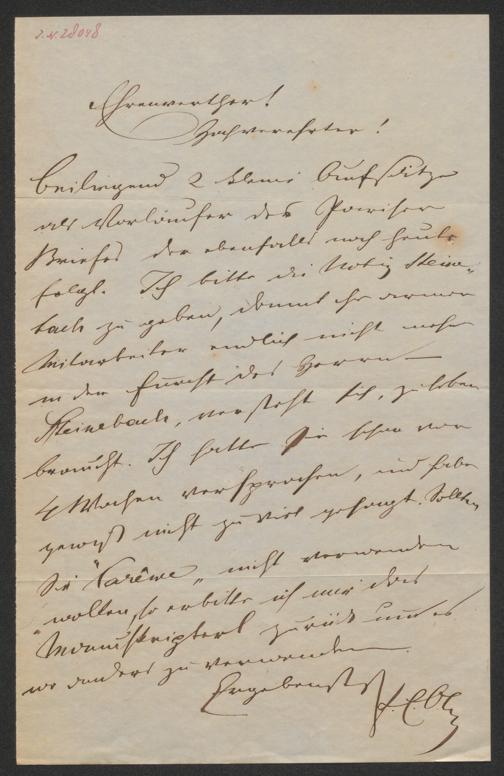 J.N. 28048
Ehrenwerther!
Hochverehrter!
Beiliegend 2 kleine Aufsätze
als Vorläufer des Pariser
Briefes der ebenfalls noch heute
folgt. Ich bitte die Notiz Steine-
bach zu geben, damit Ihr armer
Mitarbeiter endlich nicht mehr
in der Furcht des Herrn —
Steinebach, versteht sich, zu leben
braucht. Ich hatte sie schon vor
4 Wochen versprochen, und habe
gewiß nicht zu viel gesagt. Sollten
Sie "Carême" nicht verwenden
wollen, so erbitte ich mir das
Manuskripterl zurück um es
wo anders zu verwenden.
Ergebenst